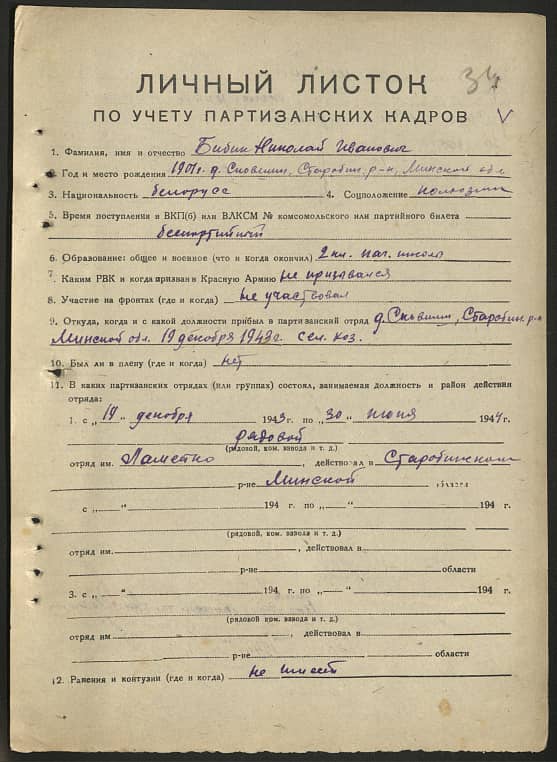 34
ЛИЧНЫЙ ЛИСТОК
ПО УЧЕТУ ПАРТИЗАНСКИХ КАДРОВ V
1. Фамилия, имя и отчество Бибик Николай Иванович
2. Год и место рождения 1901г. д. Старобин. р-н, Минской обл
3. Национальность белорусс 4. Соцположение колхозник
5. Время поступления в ВКП(б) или ВЛКСМ № комсомольского или партийного билета
беспартийный
6. Образование: общее и военное (что и когда окончил) 2 кл. нач. школы
7. Каким РВК и когда призван в Красную Армию не призывался
8. Участие на фронтах (где и когда) не участвовал
9. Откуда, когда и с какой должности прибыл в партизанский отряд д. Старобин. р-н
Минской обл. 19 декабря 1943г. сел. хоз.
10. Был ли в плену (где и когда) нет
11. В каких партизанских отрядах (или группах) состоял, занимаемая должность и район действия
отряда:
1. с „19“ декабря 1943 г. по „30“ июня 1944 г.
рядовой
(рядовой, ком. взвода и т. д.)
отряд им. , действовал в Старобинском
р-не Минской области
с „—“ 194 г. по „—“ 194 г.
(рядовой, ком. взвода и т. д.)
отряд им. , действовал в
р-не области
3. с „—“ 194 г. по „—“ 194 г.
(рядовой, ком. взвода и т. д.)
отряд им. , действовал в
р-не области
12. Ранения и контузии (где и когда) не имеет